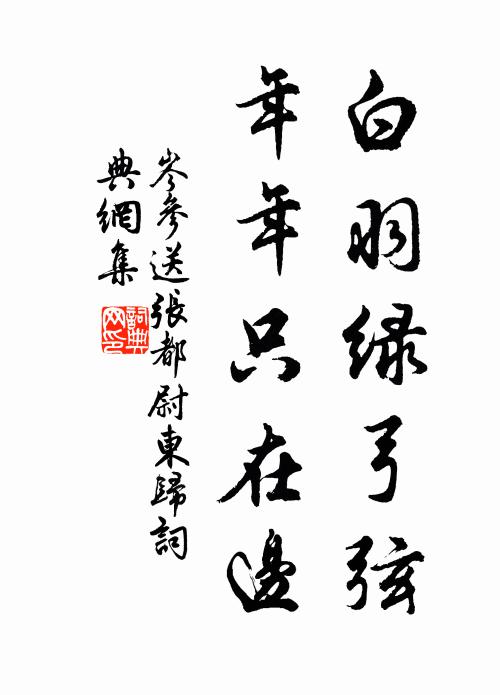 白羽緑弓弦
年年只在邊
岑參送張都尉東歸詞
典網集
詞典
网印